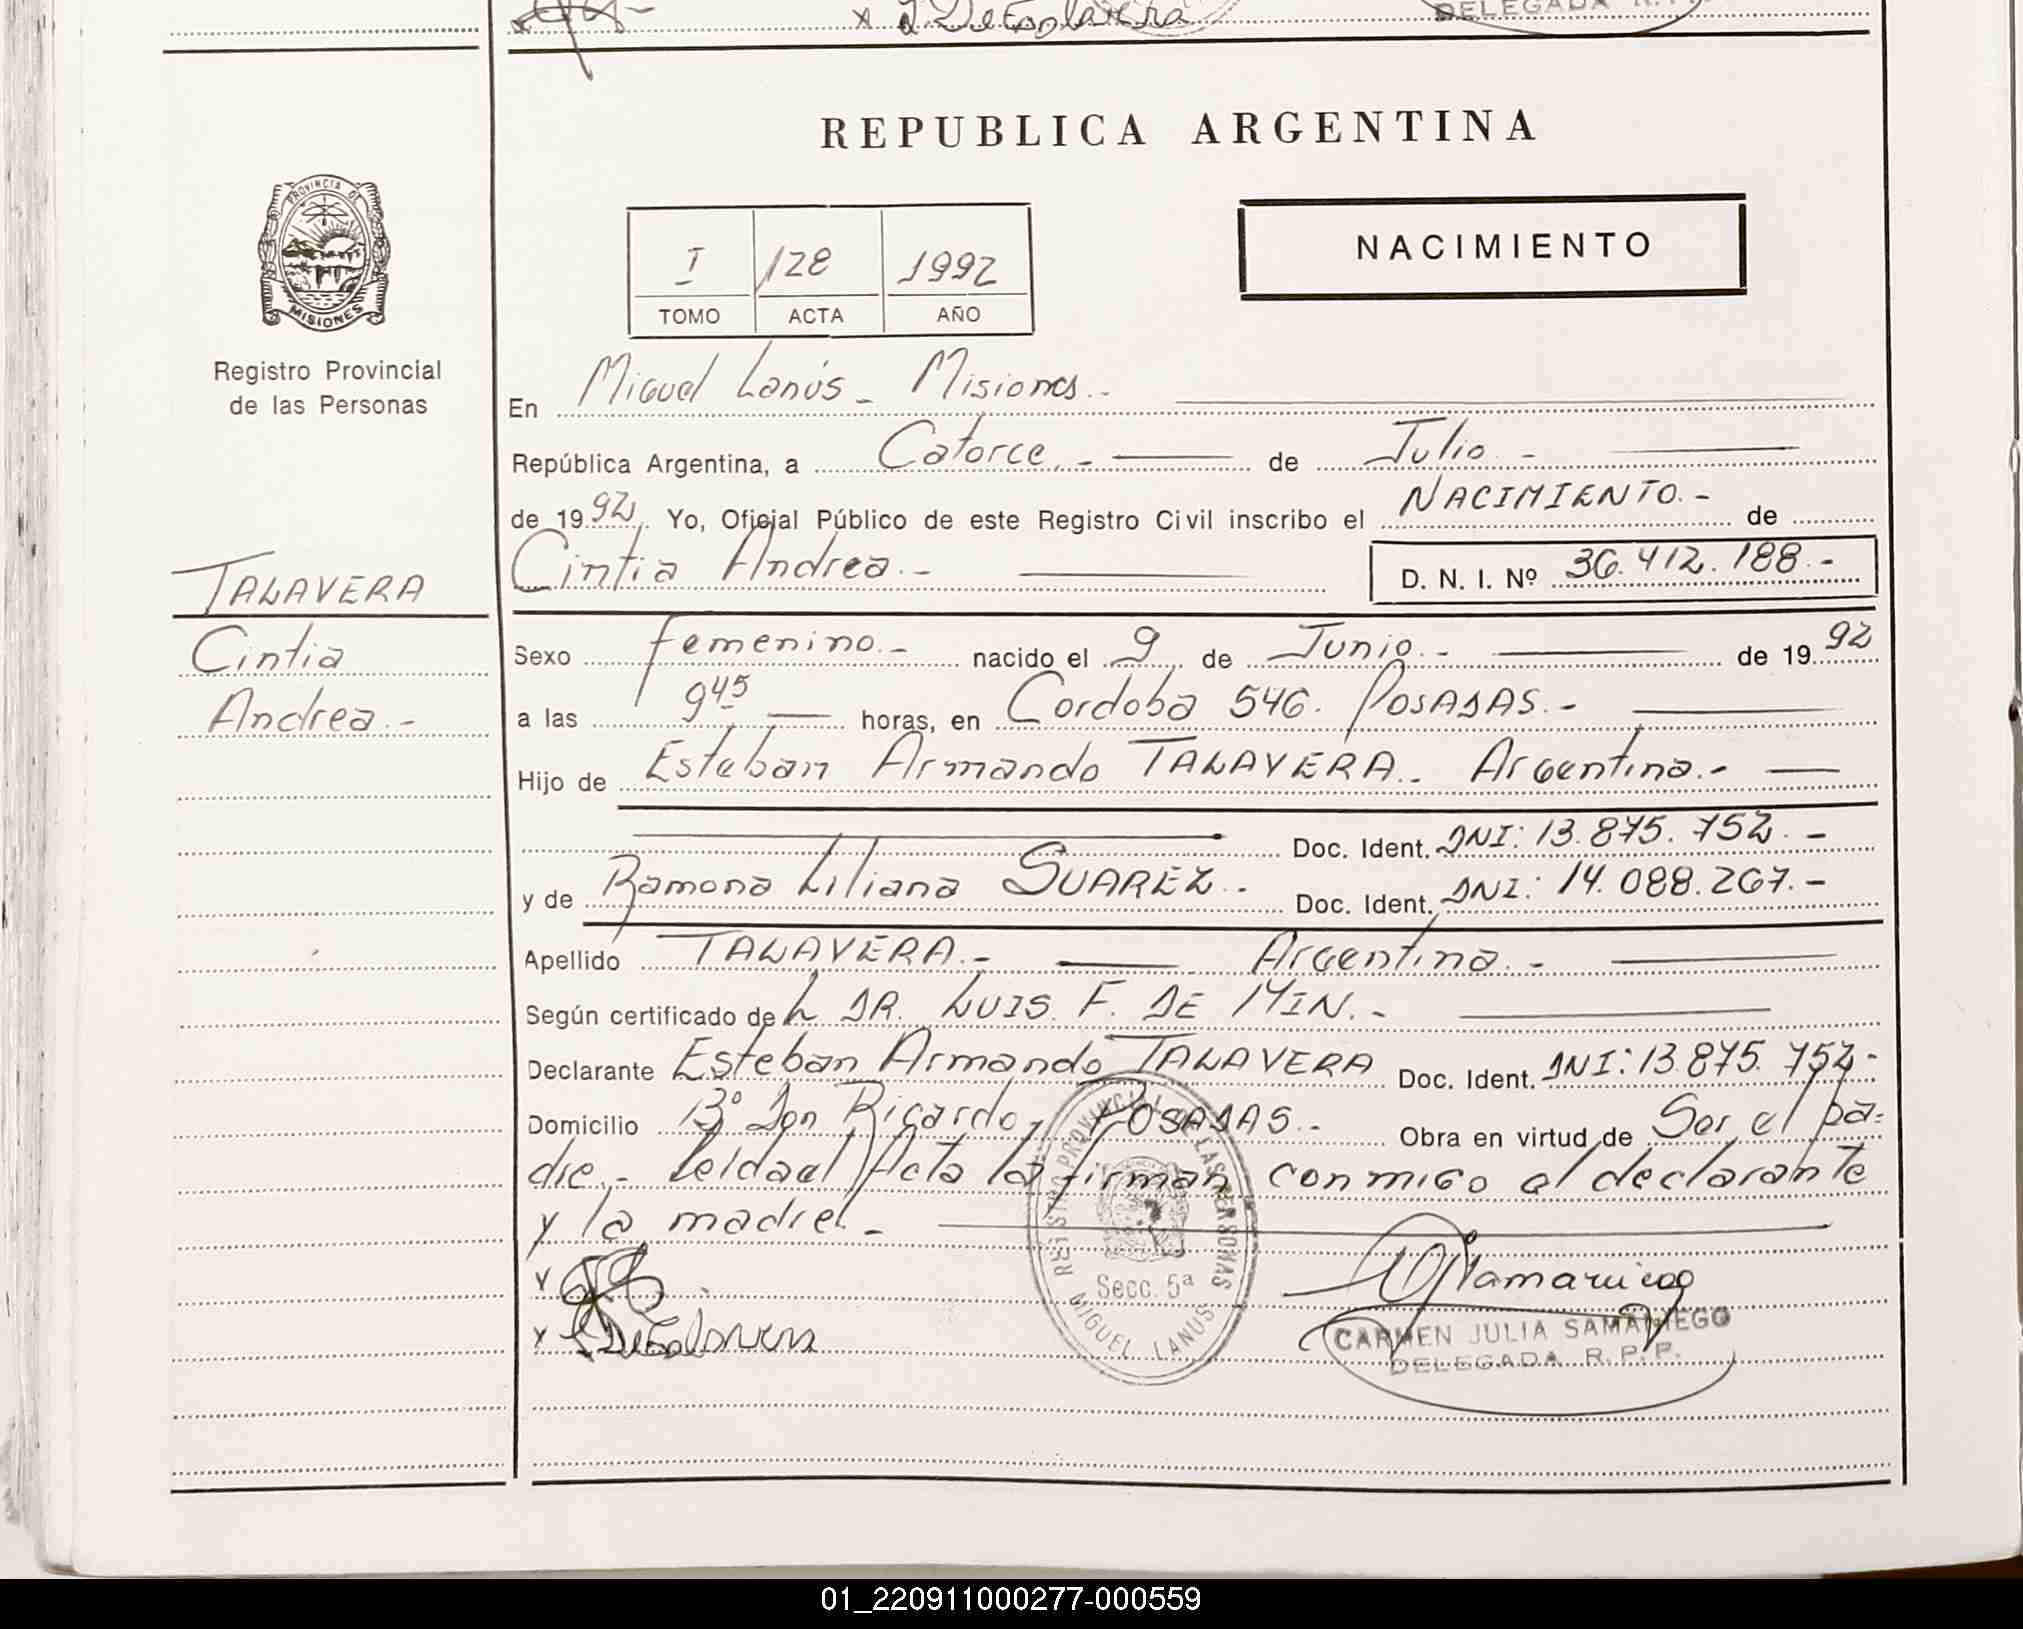 DELEGADA R.P.P.
REPUBLICA ARGENTINA
PROVINCIA DE
MISIONES
Registro Provincial
de las Personas
I 128 1992
TOMO ACTA AÑO
NACIMIENTO
En Miguel Lanús - Misiones.-
República Argentina, a Catorce.- de Julio.-
de 1992. Yo, Oficial Público de este Registro Civil inscribo el NACIMIENTO.- de
Cintia Andrea.- D. N. I. Nº 36.412.188.-
TALAVERA
Cintia
Andrea.-
Sexo femenino.- nacido el 9 de Junio.- de 1992
a las 9 45 horas, en Cordoba 546. POSADAS.-
Hijo de Esteban Armando TALAVERA.- Argentino.-
Doc. Ident. DNI: 13.875.752.-
y de Ramona Liliana SUAREZ.- Doc. Ident. DNI: 14.088.267.-
Apellido TALAVERA.- Argentina.-
Según certificado de L DR. LUIS. F. DE MIN.-
Declarante Esteban Armando TALAVERA Doc. Ident. DNI: 13.875.752-
Domicilio Bº Don Ricardo, POSADAS.- Obra en virtud de Ser el pa=
dre.- Leida el Acta la firman conmigo el declarante
y la madre.-
REGISTRO PROVINCIAL DE LAS PERSONAS
Secc. 5ª
MIGUEL LANUS
CARMEN JULIA SAMANIEGO
DELEGADA R.P.P.
01_220911000277-000559